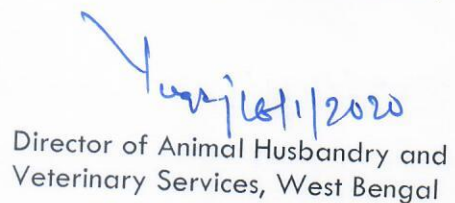 16/1/2020
Director of Animal Husbandry and
Veterinary Services, West Bengal